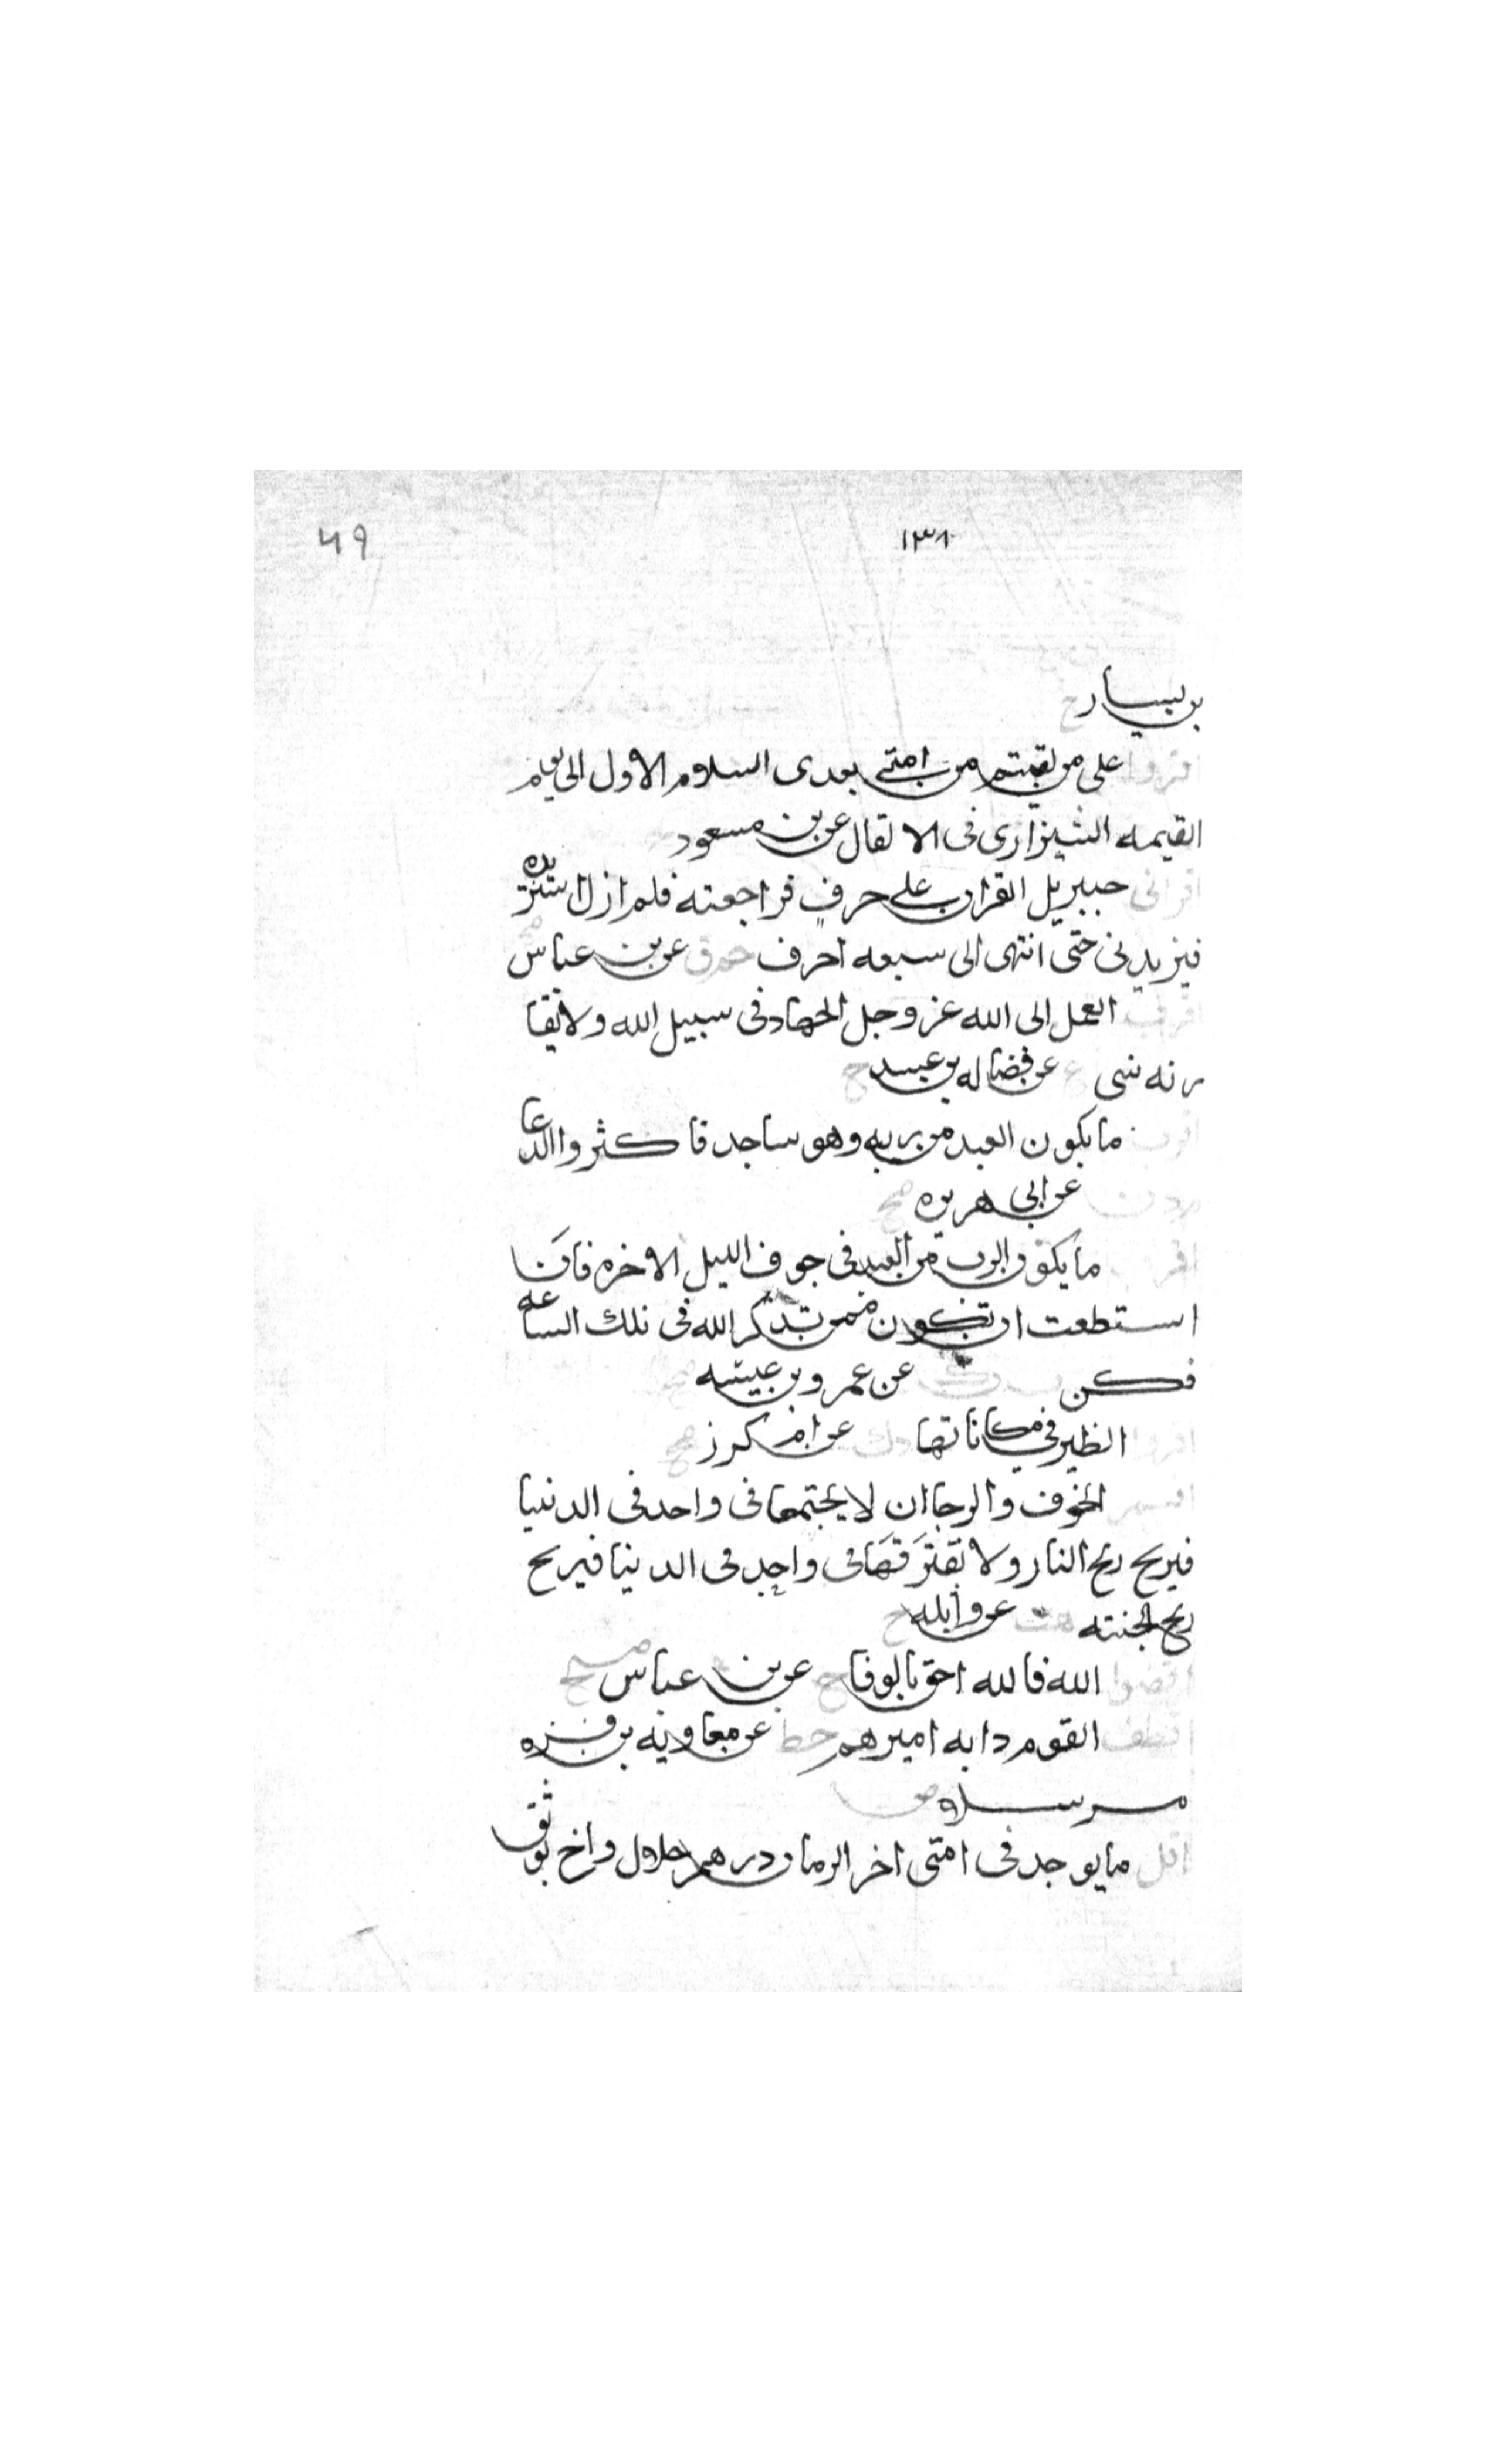 49 ١٣٨
بن يسار ح
اقروا على من لقيتم من امتى بعدى السلام الاول الى يوم
القيمه الشيزارى فى الالقال عن بن مسعود
اقرانى جبيريل القران على حرف فراجعته فلم ازل استزيده
فيزيدنى حتى انتهى الى سبعه احرف حم ق عن بن عباس صح
اقرب العمل الى الله عز وجل الجهاد فى سبيل الله ولا يقا
ربه شى عن فضاله بن عبيد ح
اقرب ما يكون العبد من ربه وهو ساجد فاكثروا الدعا
م د ن عن ابى هريره صح
اقرب ما يكون الرب من العبد فى جوف الليل الاخره فان
استطعت ان تكون ممن تذكر الله فى تلك الساعه
فكن ت ن ك عن عمرو بن عبسه صح
اقروا الطير فى مكاناتها د ك عن ام كرز صح
اقسم الخوف والرجا ان لا يجتمعا فى واحد فى الدنيا
فيريح ريح النار ولا يفترقا فى واحد فى الدنيا فيريح
ريح الجنته هب عن واثله ح
اقضوا الله فالله احق بالوفا خ عن بن عباس صح
اقطف القوم دابه اميرهم خط عن معاويه بن قره
مرسلا ض
اقل ما يوجد فى امتى اخر الزمان درهم حلال واخ يوثق